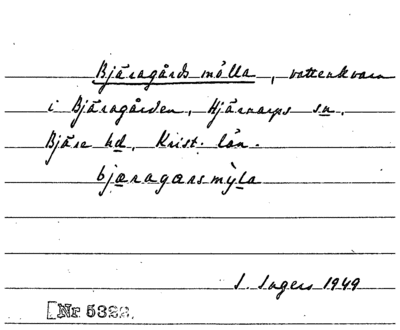 Bjäragårds mölla, vattenkvarn
i Bjäragården, Hjärnarps sn.
Bjäre hd, Krist. län.
bjæragærsmỳla
S. Ingers 1949
[Nr 5322.